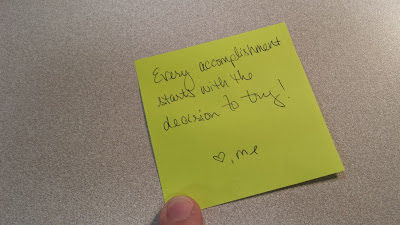 Every accomplishment
starts with the
decision to try!
♡, me